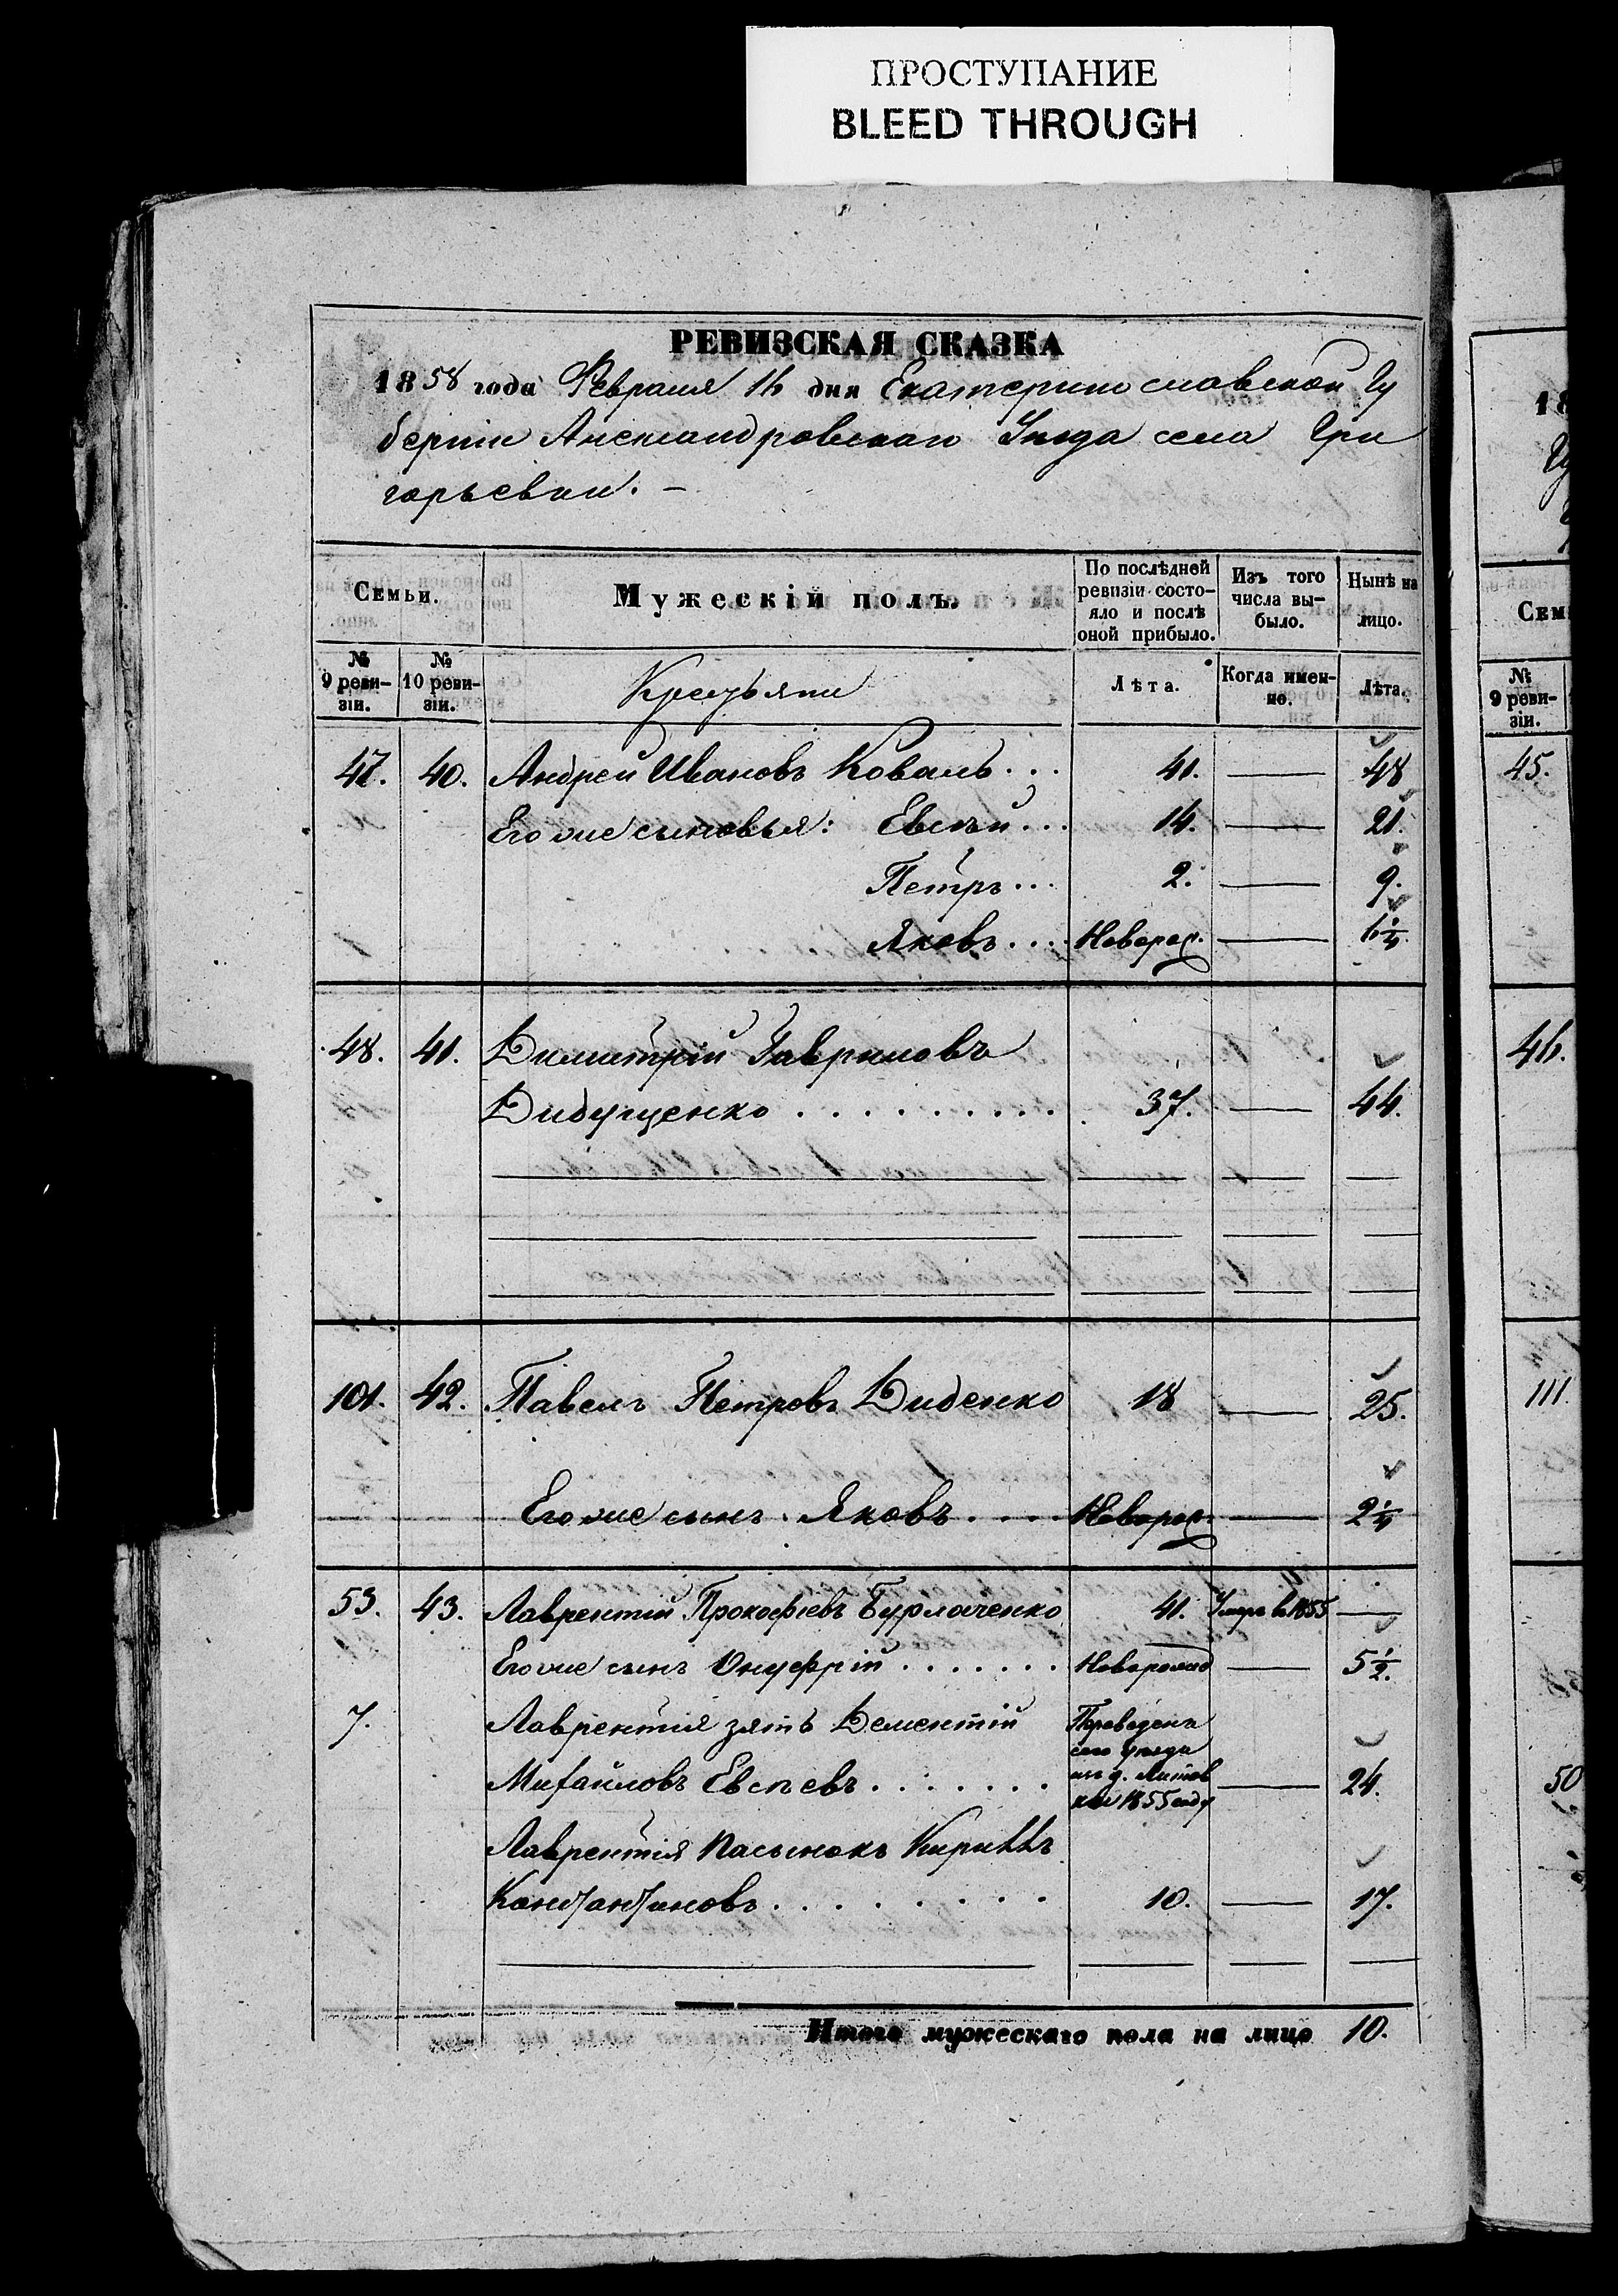 ПРОСТУПАНИЕ
BLEED THROUGH
РЕВИЗСКАЯ СКАЗКА
1858 года Февраля 16 дня Екатеринославской Гу
берніи Александровскаго Уѣзда села Гри
горьевки. –
Семьи.
Мужескій полъ.
По послѣдней ревизіи состо-яло и послѣ оной прибыло.
Изъ того числа вы-было.
Нынѣ на лицо.
№ 9 реви-зіи.
№ 10 реви-зіи.
Крестьяни
Лѣта.
Когда имен-но.
Лѣта.
47. 40. Андрей Ивановъ Коваль... 41. — 48
Его же сыновья: Евсѣй... 14. — 21.
Петръ... 2. — 9.
Яковъ.... Наворож. — 1 1/4.
48. 41. Димитрій Гавриловъ
Дидущенко .......... 37. — 44.
101. 42. Павелъ Петровъ Диденко 18 — 25.
Его же сынъ. Яковъ.... Наворож. — 2 1/4
53. 43. Лаврентій Прокофіевъ Бурлаченко 41. Умеръ в 1855 —
Его же сынъ Онуфрій ....... Наворожд — 5 1/2.
7. Лаврентія зять Дементій
Михайловъ Евсѣевъ.......
Переведенъ
сего уѣзда
изъ д. Литов
ки 1855 году
— 24.
Лаврентія Пасынокъ Кирилъ
Константиновъ........ 10. — 17.
Итого мужескаго пола на лицо 10.
18
Гу
Сем
№ 9 реви-зіи.
45.
46.
111.
50